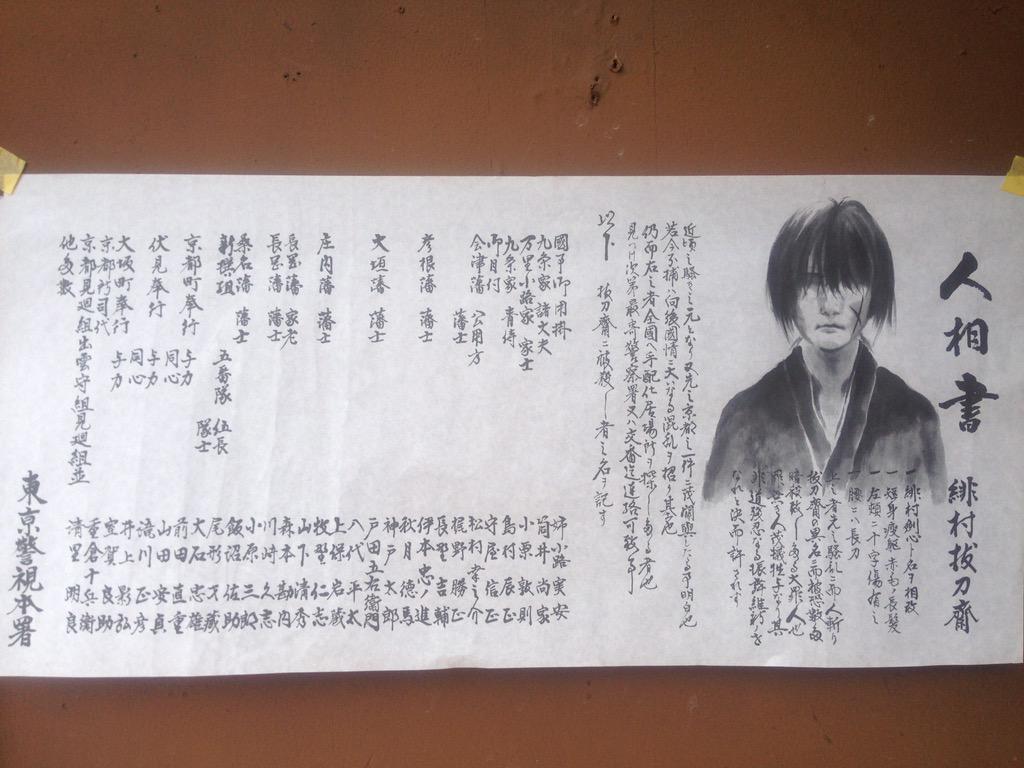 人相書
緋村抜刀齋
一 緋村剣心ト名ヲ相改
一 短身痩躯 赤毛ノ長髪
一 左頬ニ十字傷有之
一 腰ニハ長刀
上之者先之騒乱ニ而人斬リ
抜刀齋の異名ニ而
暗殺致しある大罪人也
非道残忍なる振舞維新
なれど決而許され
近頃之騒ぎ之元となり又先之京都之一件ニ茂関與したる事明白也
若今不捕ハ向後國情ニ大いなる混乱ヲ招く
仍而右之者全国へ手配仕居場所ヲ探し
見つけ次第最寄警察署又ハ交番迄連絡可致事
以下 抜刀齋ニ被殺し者之名ヲ記す
國事御用掛 姉小路実安
九条家 諸大夫 筒井尚家
万里小路家 家士 小栗敦則
九条家 青侍 島村辰正
御目付 守屋信正
会津藩 公用方 松村孝之介
藩士 梶野勝正
長埜吉輔
彦根藩 藩士 伊本忠ノ進
秋月徳馬
大垣藩 藩士 神戸大太郎
戸田五右衛門
八代平太
庄内藩 藩士 上保岩蔵
牧埜仁志
山下清秀
長岡藩 家老 森本勘内
長岡藩 藩士 川崎久忠
桑名藩 藩士 小原三郎
新撰組 五番隊 伍長 飯沼佐助
隊士 尾形才蔵
大石忠雄
京都町奉行 与力 前田直重
同心 山田安真
伏見奉行 与力 滝川正彦
同心 井上影弘
大坂町奉行 与力 室賀良助
京都所司代 重倉十兵衛
京都見廻組出雲守組見廻組並 清里明良
他多数
東京警視本署